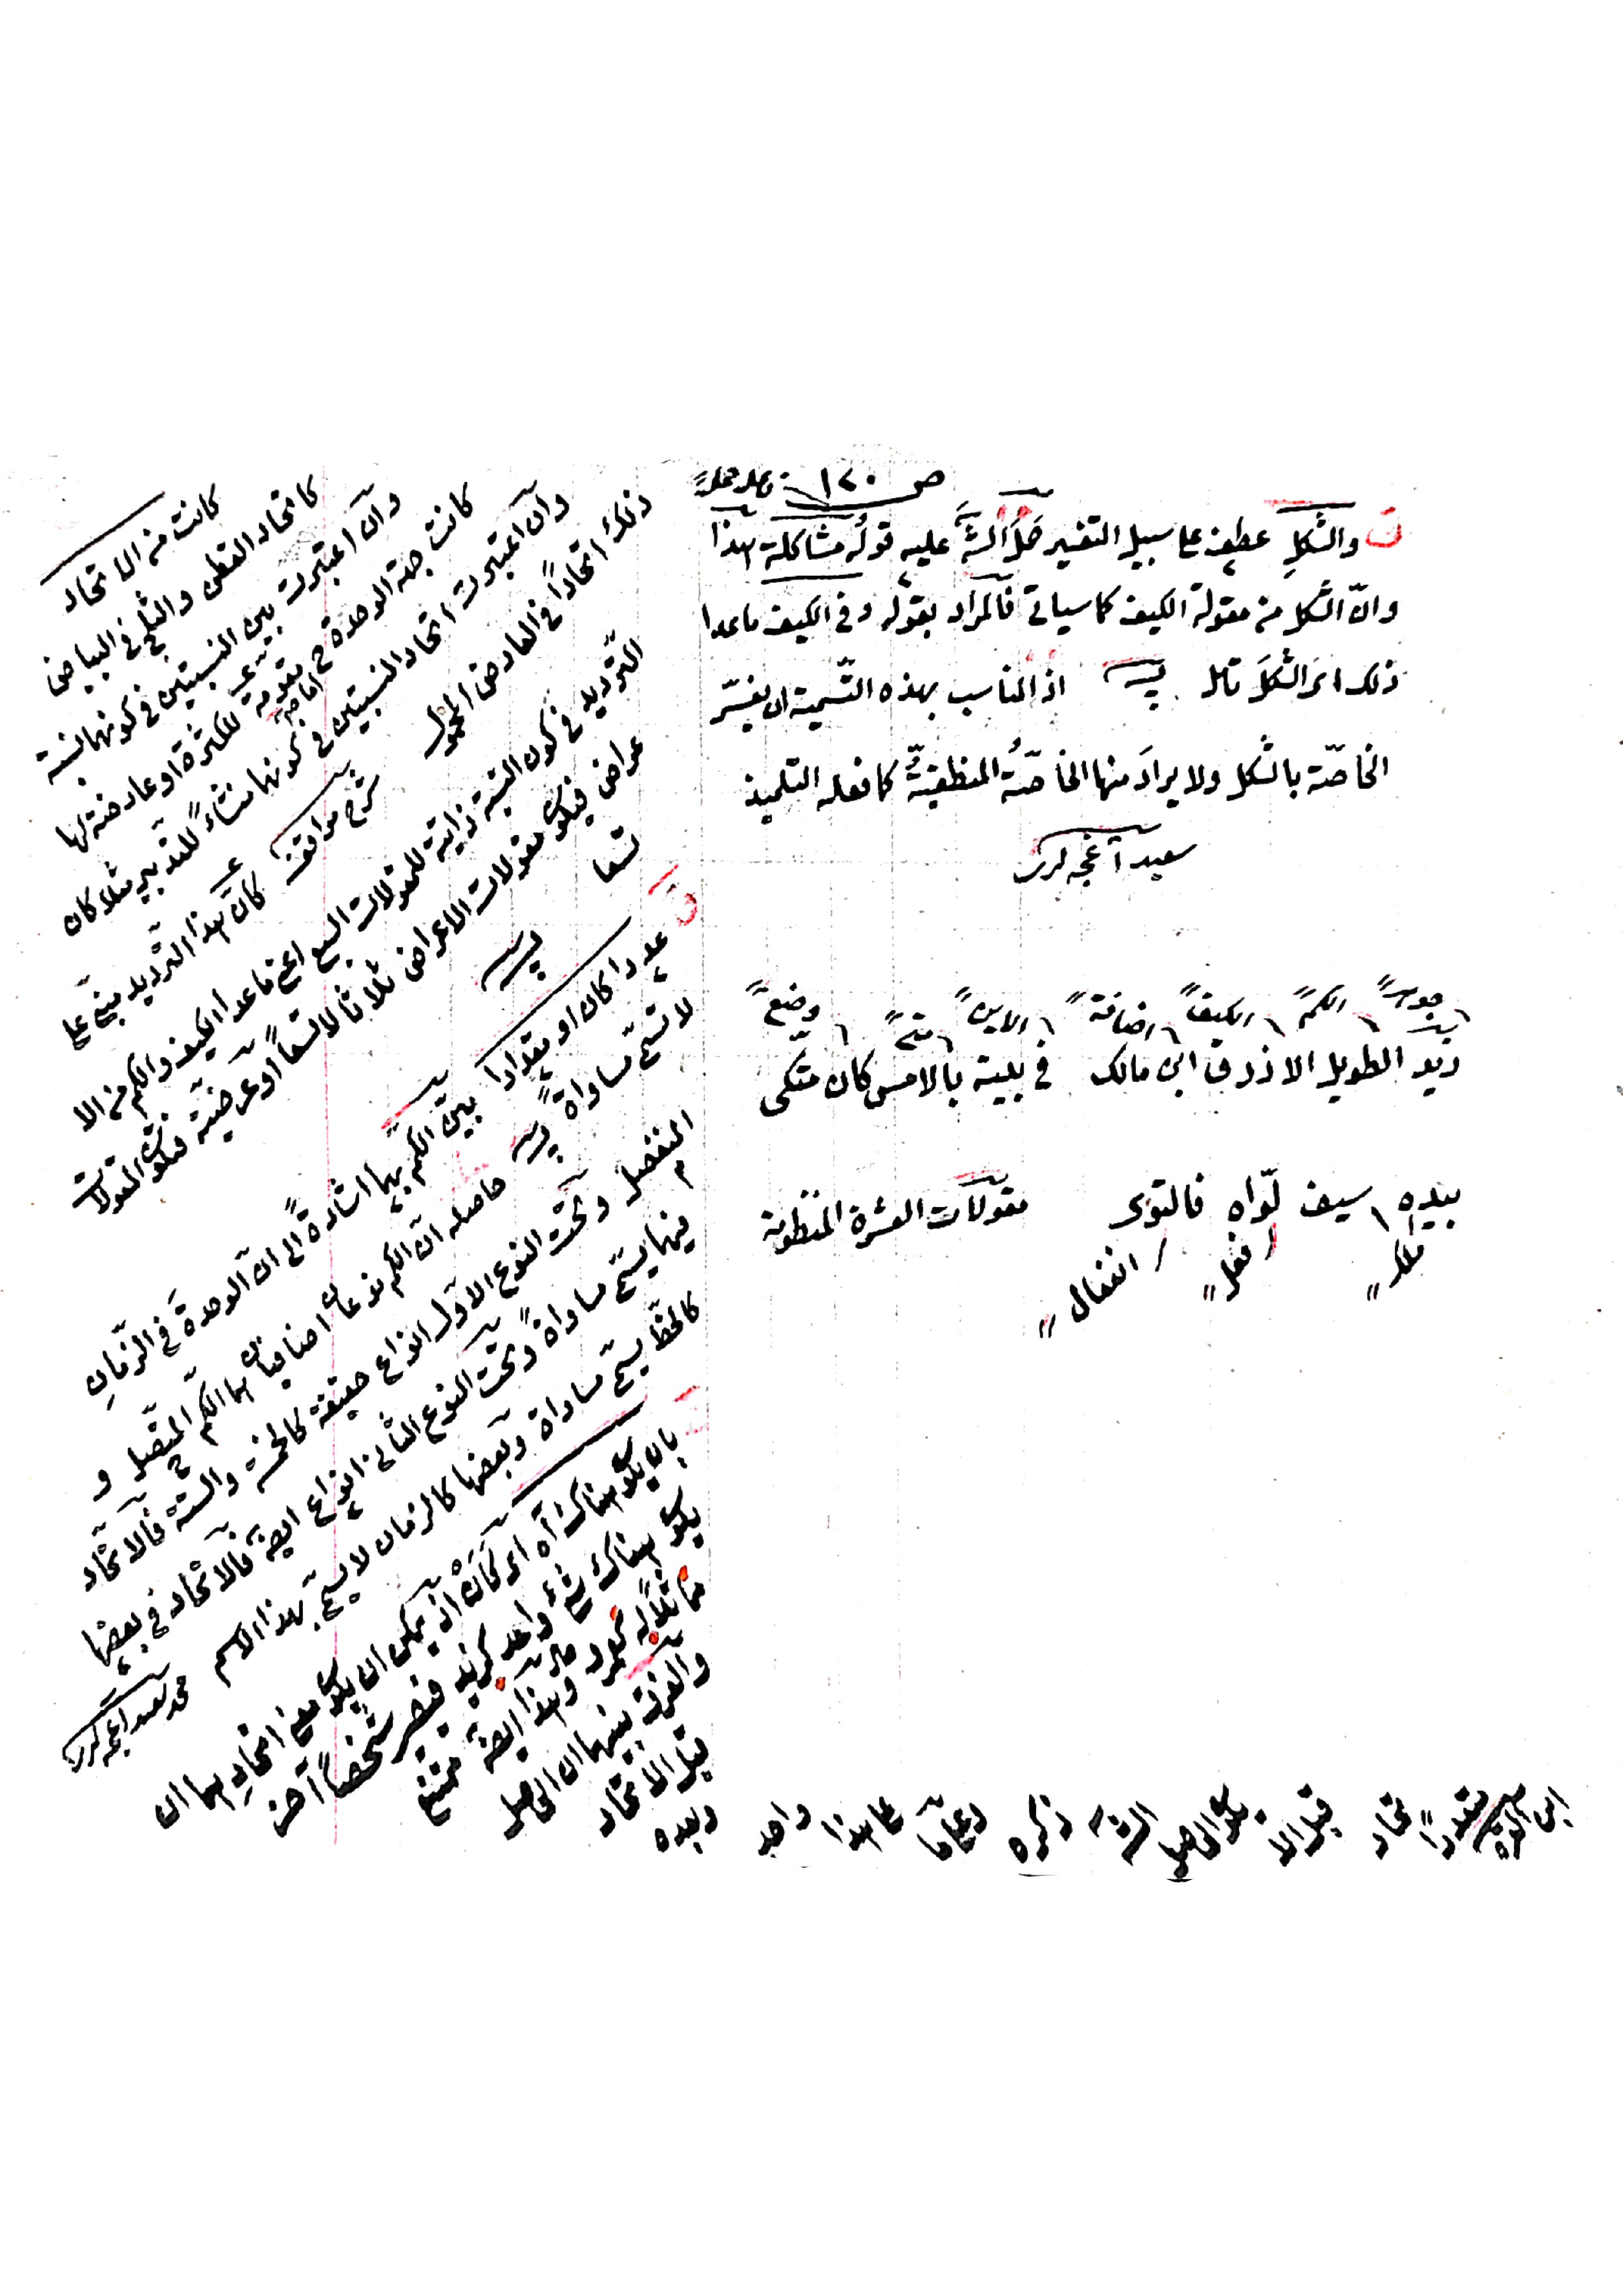 ص ١٢٠
والشكلِ عطف على سبيل التفسير حَمَلَ الشَّ عليه قولُه مشاكلة هذا
وانّ الشكل من مقولة الكيف كما سياتى فالمراد بقوله وفى الكيف ماعدا
ذلك اى الشكلَ تامل اذ المناسب بهذه التّسمية ان يفسّر
الخاصّة بالشكل ولا يرادَ منها الخاصّةُ المنطقيّةُ كما فعله التلميذ
سعيد
جوهرٌ الكمّ الكيف اضافة الاين متى وضع
زيد الطويل الازرق ابن مالك فى بيته بالامس كان متكى
بيده سيف لوّاه فالتوى مقولات العشرة المنظومة
ملك فعل انفعال
كانت من الاتحاد
كاتحاد القطن والثلج فى البياض
وان اعتبرت بين النسبتين فى كونهما نسبة
كانت جهة الوحدة مقومة للكثرة او عارضة لها
وان اعتبرت اتحاد النسبتين فى كونهما منشاءً للتدبير مثلا كان
ذلك اتحاداً فى العارض المحمول شرح مواقف كأنّ هذا الترديد مبنىّ على
التّرديد فى كون النسبة ذاتية للمقولات السبع اعنى ماعدا الكيف والكم من الا
عراض فيكون مقولات الاعراض ثلاثا لا تسعاً او عرضيّة فيكون المقولات
تسعا
عددا كان او مقدارا بيّن الكم بهما اشارةً الى انّ الوحدة فى الزّمانِ
لا تسمّى مساواةً حاصله انّ الكم نوعان اضافيان هما الكم المتّصل و
المنفصل وتحت النوع الاوّل انواع حقيقة كالخمسة والستة فالاتّحاد
فيها يسمّى مساواةً وتحت النوع الثانى انواع ايضا فالاتّحاد فى بعضها
كالخطّ يسمّى مساواة وبعضها كالزمان لا يسمّى بهذا الاسم محمد سعيد
بان يكون هناك اه اى كما انّه يمكن ان يكون معنى اتحادِهما ان
يكون هناك شئ واحد كزيد فيصير شخصاً آخر
وهذا ايضا ممتنع
والفرق بينهما ان الحاصل
قبل الاتحاد
وبعده
واحد
على هذا
وعلى ما
ذكره
الشّ
يكون الحاصل
قبل الا
تحاد
متعدداً